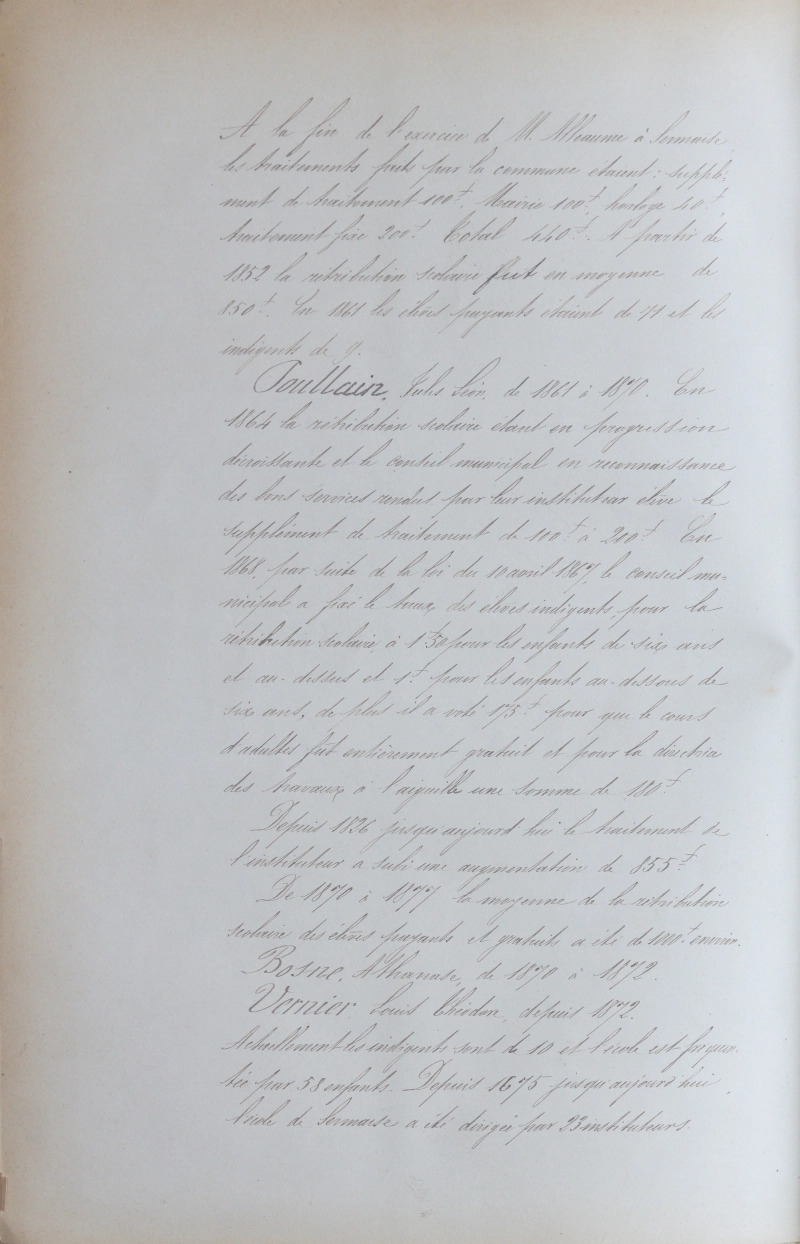 A la fin de l'exercice de M. Alleaume à Sermaise
les traitements faits par la commune étaient : supplé-
ment de traitement 100f. Mairie 100f, horloge 40f,
traitement fixe 200f. Total 440f. A partir de
1852 la rétribution scolaire fut en moyenne de
850f. En 1861 les élèves payants étaient de 41 et les
indigents de 9.
Poullain, Jules Léon, de 1861 à 1870. En
1864 la rétribution scolaire étant en progression
décroissante et le conseil municipal en reconnaissance
des bons services rendus par leur instituteur élève le
supplément de traitement de 100f à 200f. En
1868, par suite de la loi du 10 avril 1867, le conseil mu-
nicipal a fixé le taux des élèves indigents, pour la
rétribution scolaire, à 1f50 pour les enfants de six ans
et au-dessus et 1f. pour les enfants au-dessous de
six ans, de plus il a voté 175f pour que le cours
d'adultes fut entièrement gratuit et pour la direction
des travaux à l'aiguille une somme de 180f.
Depuis 1826 jusqu'aujourd'hui le traitement de
l'instituteur a subi une augmentation de 855f.
De 1870 à 1877 la moyenne de la rétribution
scolaire des élèves payants et gratuits a été de 1000f environ.
Bosne, Athanase, de 1870 à 1872.
Vernier, Louis Théodon, depuis 1872.
Actuellement les indigents sont de 10 et l'école est fréquen-
tée par 58 enfants. Depuis 1675 jusqu'aujourd'hui
l'école de Sermaise a été dirigée par 23 instituteurs.